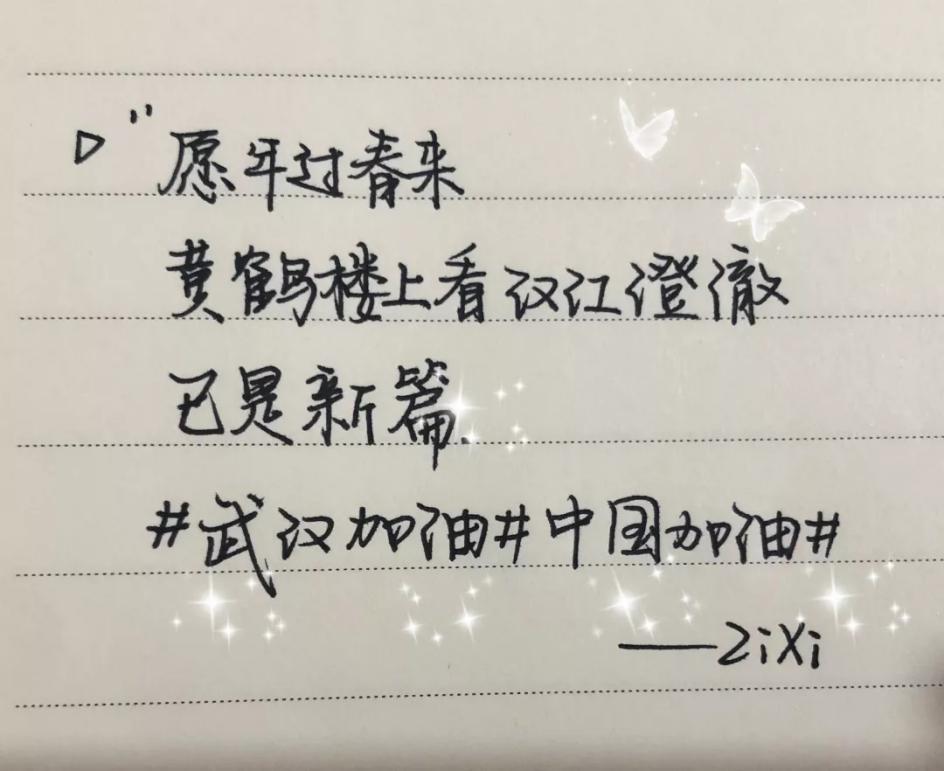 ▷"愿年过春来
黄鹤楼上看汉江澄澈
已是新篇.
#武汉加油#中国加油#
——ZiXi